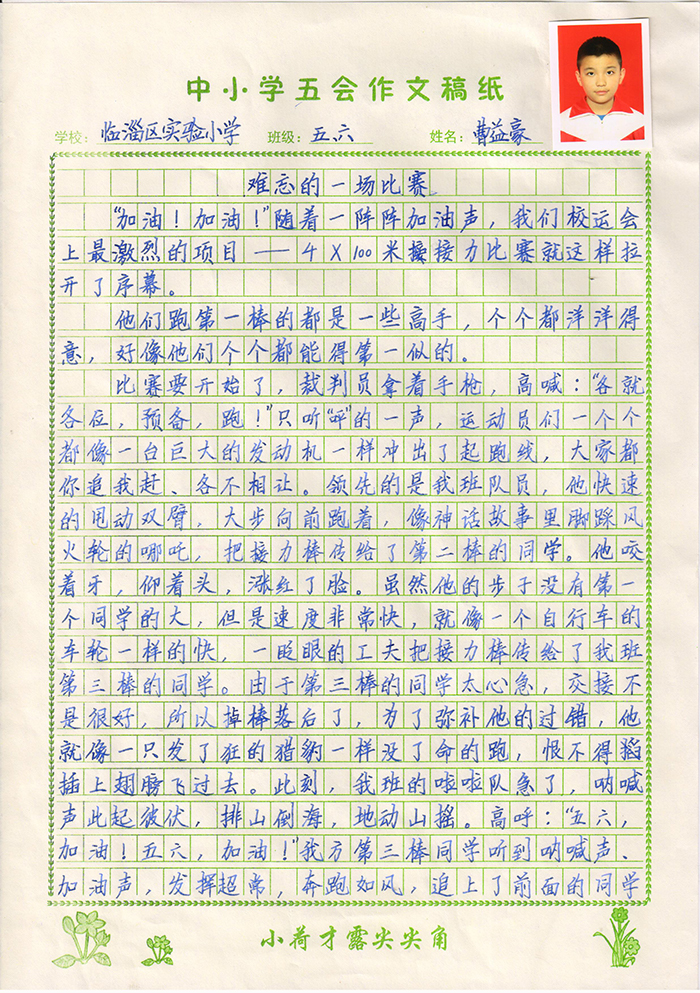 中小学五会作文稿纸
学校：临淄区实验小学 班级：五六 姓名：曹益豪
难忘的一场比赛
“加油！加油！”随着一阵阵加油声，我们校运会
上最激烈的项目——4X100米接力比赛就这样拉
开了序幕。
他们跑第一棒的都是一些高手，个个都洋洋得
意，好像他们个个都能得第一似的。
比赛要开始了，裁判员拿着手枪，高喊：“各就
各位，预备，跑！”只听“呯”的一声，运动员们一个个
都像一台巨大的发动机一样冲出了起跑线，大家都
你追我赶、各不相让。领先的是我班队员，他快速
的甩动双臂，大步向前跑着，像神话故事里脚踩风
火轮的哪吒，把接力棒传给了第二棒的同学。他咬
着牙，仰着头，涨红了脸。虽然他的步子没有第一
个同学的大，但是速度非常快，就像一个自行车的
车轮一样的快，一眨眼的工夫把接力棒传给了我班
第三棒的同学。由于第三棒的同学太心急，交接不
是很好，所以掉棒落后了，为了弥补他的过错，他
就像一只发了狂的猎豹一样没了命的跑，恨不得
插上翅膀飞过去。此刻，我班的啦啦队急了，呐喊
声此起彼伏，排山倒海，地动山摇。高呼：“五六，
加油！五六，加油！”我方第三棒同学听到呐喊声、
加油声，发挥超常，奔跑如风，追上了前面的同学
小荷才露尖尖角